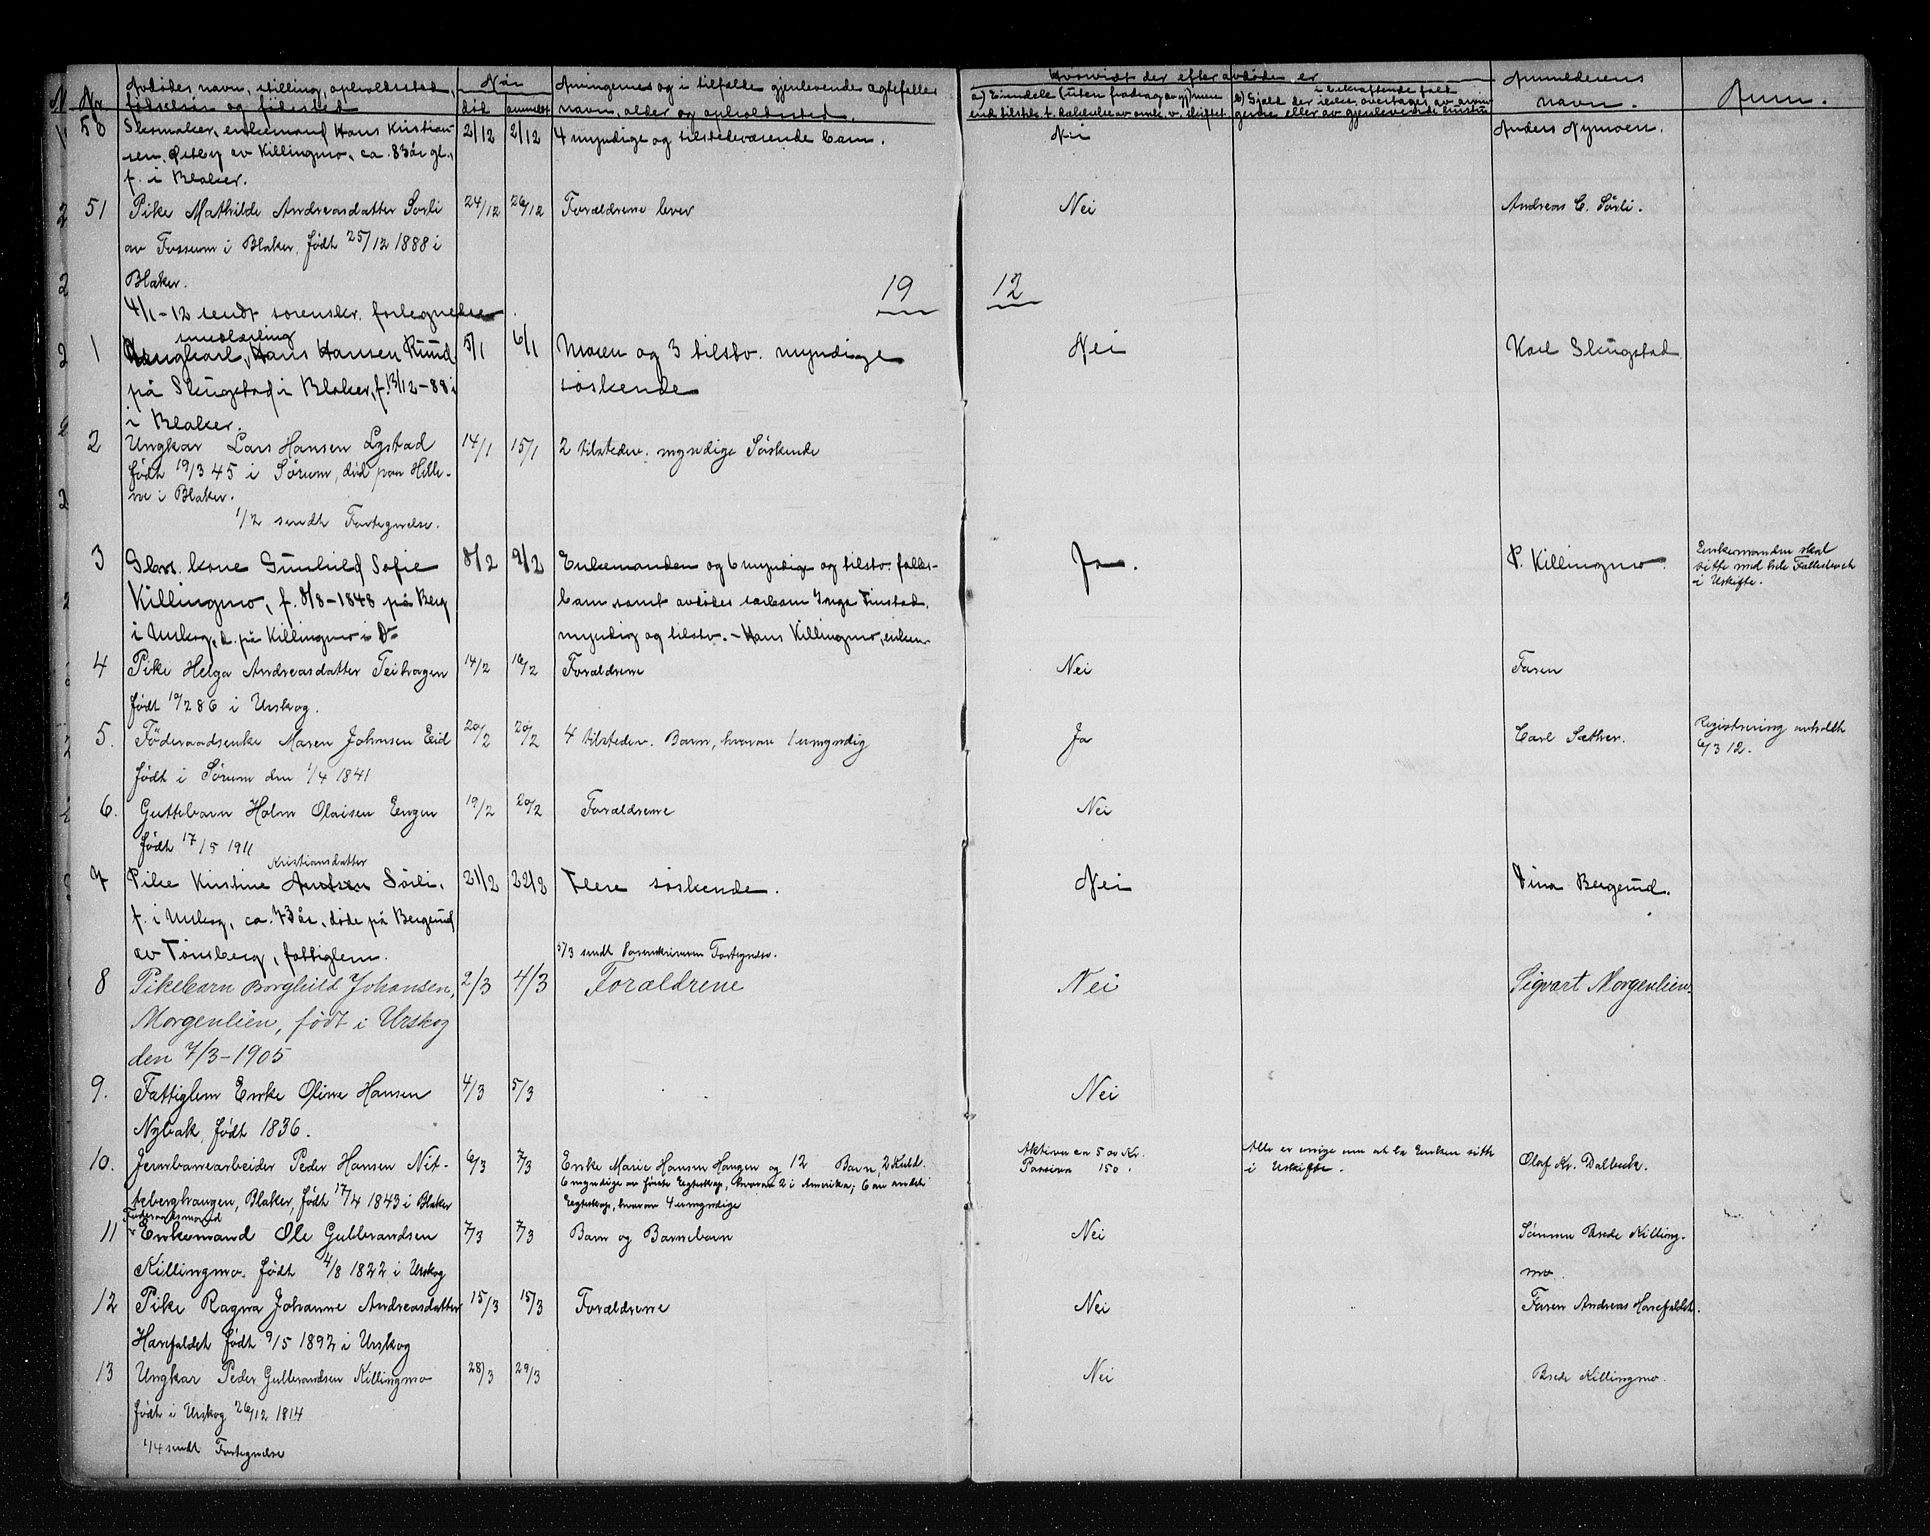 No Avdødes navn, stilling, opholdssted, Når Arvingernes og i tilfælde gjenlevende ægtefælles Hvorvidt der efter avdøde er Anmelderens Anm.
fødselsår og fødested død anmeldt navn, alder og opholdssted. a) Eiendele b) Gjæld der navn.
50 Skomaker, enkemand Hans Kristian- 2/12 2/12 4 myndige og tilstedeværende barn. Nei Anders Nymoen.
sen, Østby av Killingmo, ca. 83 år gl.,
f. i Blaker.
51 Pike Mathilde Andreasdatter Sørli 24/12 26/12 Forældrene lever Nei Andreas C. Sørli.
av Fossum i Blaker, født 25/12 1888 i
Blaker.
4/1-12 sendt sorenskr. fortegnelse
19 12
1 Ungkarl, Hans Hansen Ruud 5/1 6/1 Moren og 3 tilstv. myndige Nei Karl Skugstad
på Skugstad i Blaker, f. 13/12-88 i søskende
i Blaker.
2 Ungkar Lars Hansen Lystad 14/1 15/1 2 tilstedev. myndige Søskende
født 19/3 45 i Sørum, død paa Hille-
sne i Blaker.
1/2 sendt Fortegnelse.
3 Gbr. kone Gunhild Sofie 8/2 9/2 Enkemanden og 6 myndige og tilstv. fælles- Ja. P. Killingmo Enkemanden skal
Killingmo, f. 8/8-1848 på Berg barn samt avdødes særbarn Inga Finstad, sitte med hele Fællesboet
i Urskog, d. på Killingmo i Do myndig og tilstv. - Hans Killingmo, enkem. i Uskifte.
4 Pike Helga Andreasdatter Teihagen 14/2 16/2 Forældrene Nei Faren
født 19/2 86 i Urskog.
5. Føderaadsenke Maren Johnsen Eid 20/2 20/2 4 tilstedev. Barn, hvorav 1 umyndig Ja Carl Sæther. Registrering avholdt
født i Sørum den 1/4 1841 6/3 12.
6. Guttebarn Holm Olaisen Engen 19/2 20/2 Forældrene Nei
født 17/5 1911
Kristiansdatter
7 Pike Kirstine Sørli, 21/2 22/2 Flere søskende. Nei Dina Bergerud.
f. i Urskog, ca. 73 år, døde på Bergerud
av Tønsberg, fattiglem. 5/3 sendt Sorenskriveren Fortegnelse.
8 Pikebarn Borghild Johansen, 2/3 4/3 Forældrene Nei Sigvart Morgenlien
Morgenlien, født i Urskog
den 7/3-1905
9. Fattiglem Enke Oline Hansen 4/3 5/3 Nei
Nybak, født 1836.
10. Jernbanearbeider Peder Hansen Nit- 6/3 7/3 Enke Marie Hansen Haugen og 12 Barn, 2 Kuld. Aktiva ca 500 Kr. Alle er enige om at la Enken sitte Olaf Kr. Dalbæk.
tebergshaugen, Blaker, født 17/4 1843 i Blaker 6 myndige av første Egteskap, hvorav 2 i Amerika; 6 av andet Passiva 150. i Uskifte.
Egteskap, hvorav 4 umyndige
Føderaadsmand
11 Enkemand Ole Gulbrandsen 7/3 7/3 Barn og Barnebarn Nei Sønnen Brede Killing-
Killingmo, født 4/8 1822 i Urskog mo.
12 Pike Ragna Johanne Andreasdatter 15/3 15/3 Forældrene Nei Faren Andreas Harefaldet.
Harefaldet født 9/5 1892 i Urskog
13 Ungkar Peder Gulbrandsen Killingmo 28/3 29/3 Nei Brede Killingmo.
født i Urskog 26/12 1814
1/4 sendt Fortegnelse